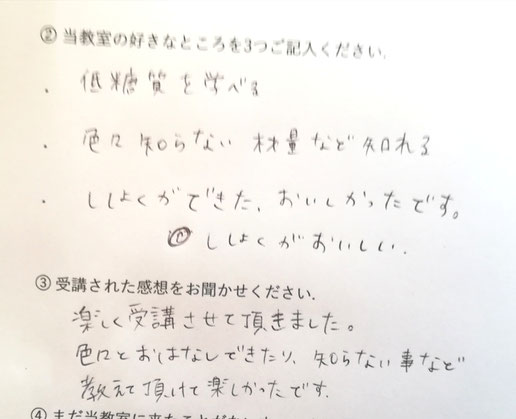 ② 当教室の好きなところを3つご記入ください.
・ 低糖質を学べる
・ 色々知らない材量など知れる
・ ししょくができた、おいしかったです。
◎ ししょくがおいしい.
③ 受講された感想をお聞かせください.
楽しく受講させて頂きました。
色々とおはなしできたり、知らない事など
教えて頂けて楽しかったです.
④ まだ当教室に来たことがない